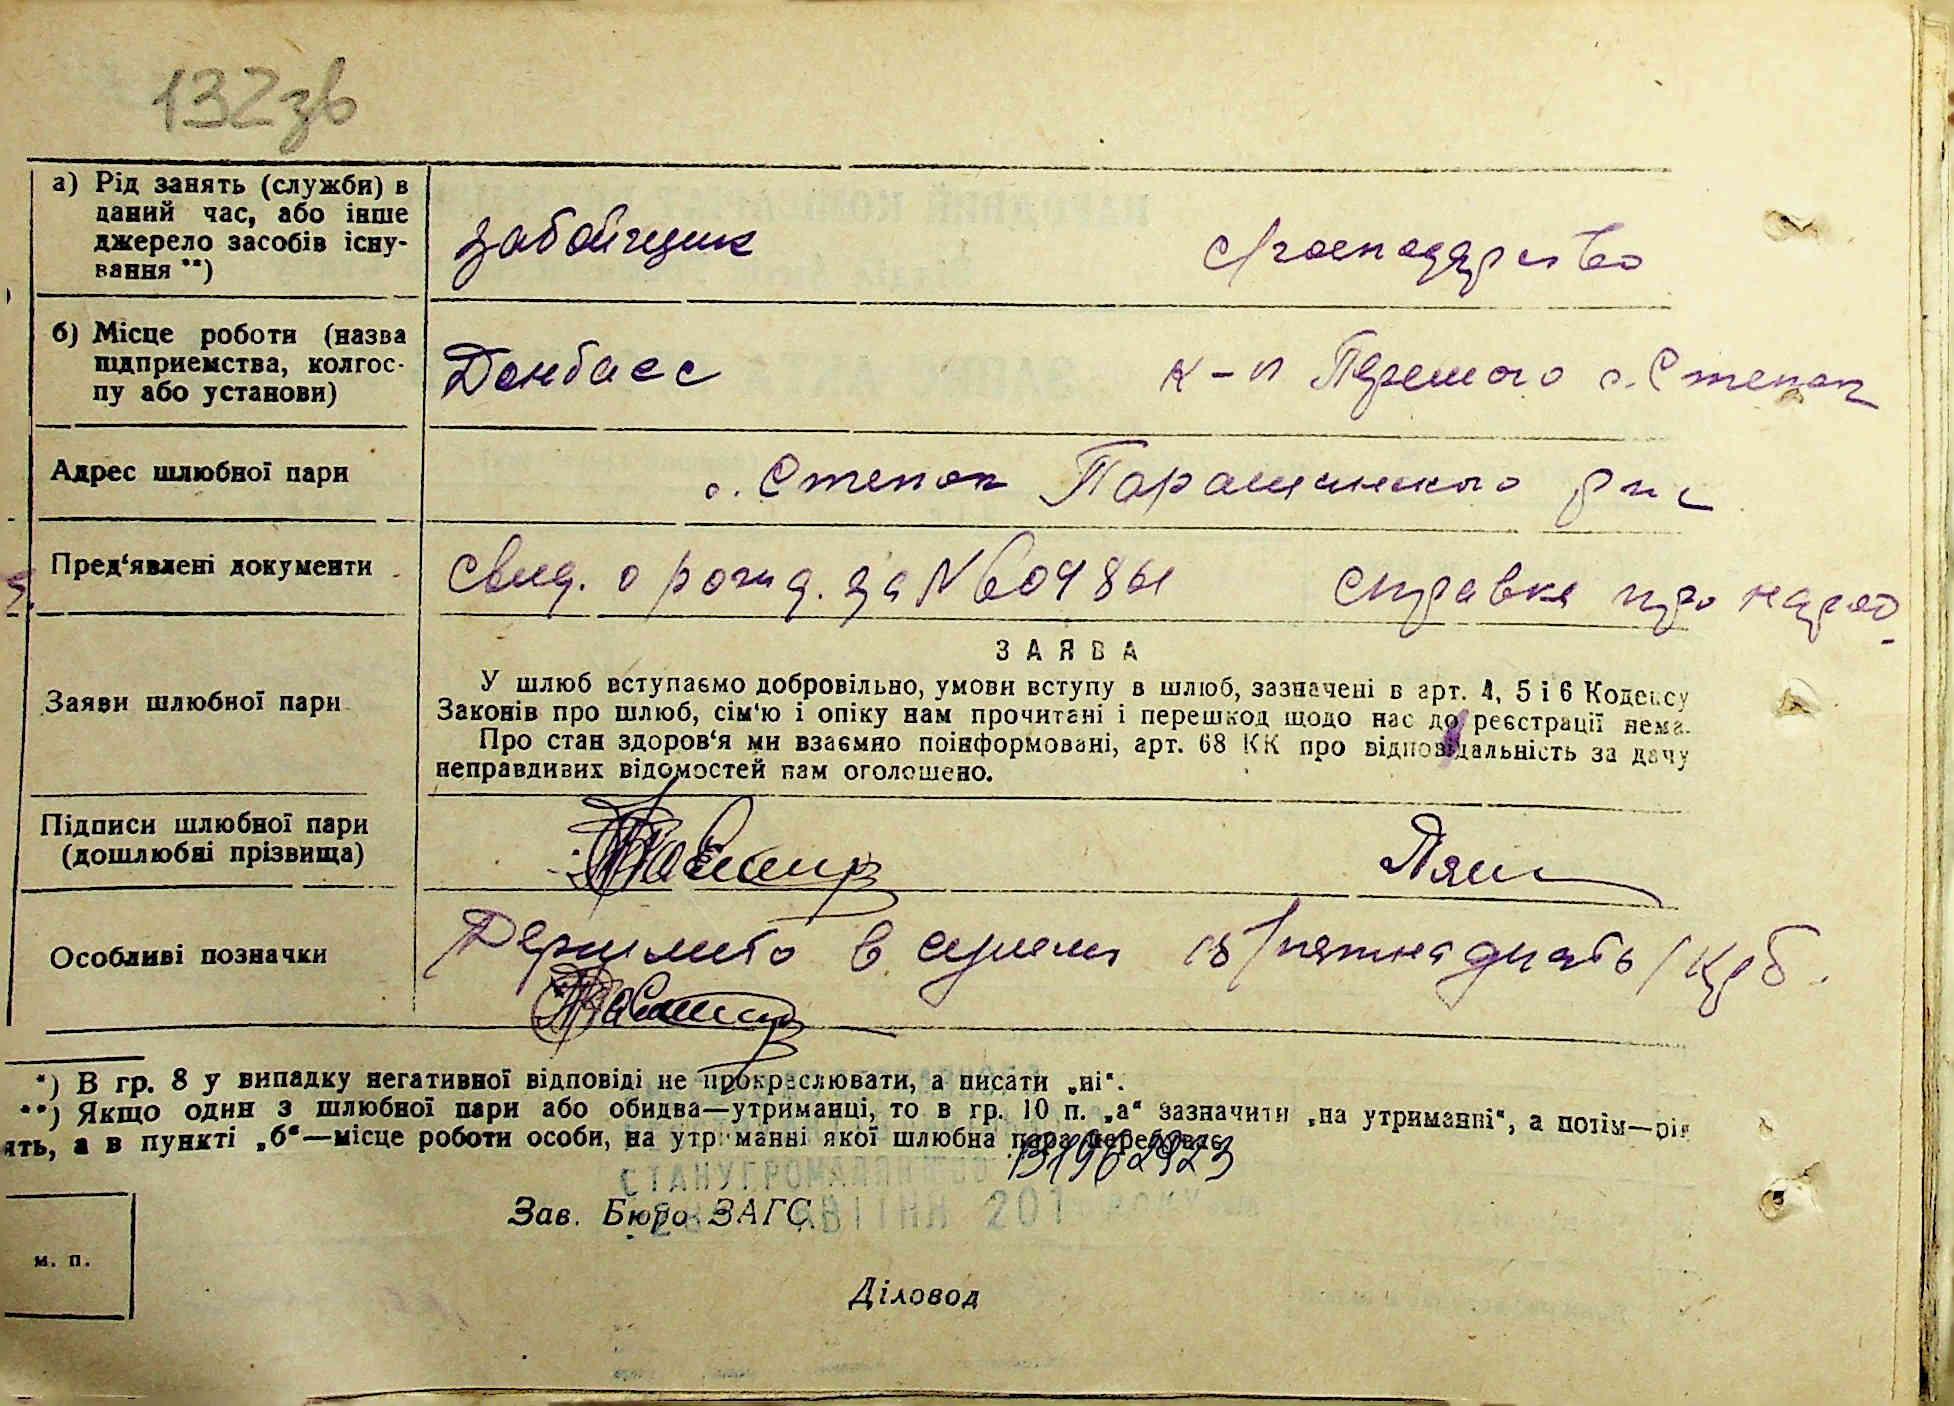 132зв
а) Рід занять (служби) в
даний час, або інше
джерело засобів існу-
вання **)
забойщик
с/господарство
б) Місце роботи (назва
підприємства, колгос-
пу або установи)
Донбасс
к-п с. Степок
Адрес шлюбної пари
с. Степок
Пред'явлені документи
свид. о рожд. за №
справка про народ.
Заяви шлюбної пари
ЗАЯВА
У шлюб вступаємо добровільно, умови вступу в шлюб, зазначені в арт. 4, 5 і 6 Кодексу
Законів про шлюб, сім'ю і опіку нам прочитані і перешкод щодо нас до реєстрації нема.
Про стан здоров'я ми взаємно поінформовані, арт. 68 КК про відповідальність за дачу
неправдивих відомостей нам оголошено.
Підписи шлюбної пари
(дошлюбні прізвища)
Особливі позначки
в сумі 15 /пятнадцать/ крб.
*) В гр. 8 у випадку негативної відповіді не прокреслювати, а писати „ні“.
**) Якщо один з шлюбної пари або обидва—утриманці, то в гр. 10 п. „а“ зазначити „на утриманні“, а потім—рід
ять, а в пункті „б“—місце роботи особи, на утриманні якої шлюбна пара перебуває.
Зав. Бюро ЗАГС
м. п.
Діловод